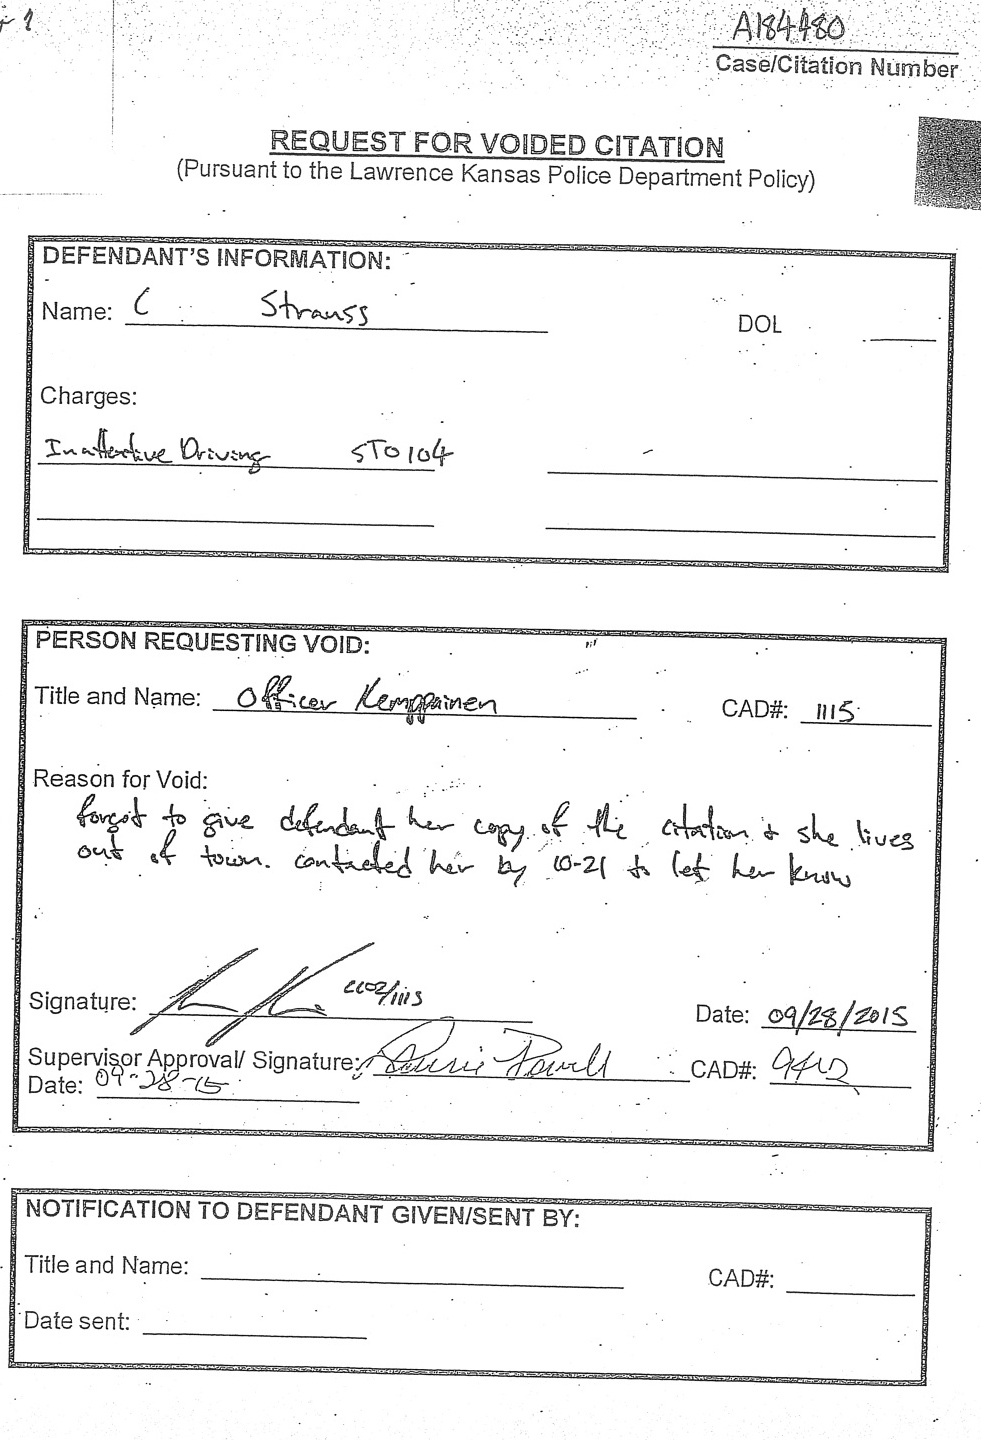 A184480
Case/Citation Number
REQUEST FOR VOIDED CITATION
(Pursuant to the Lawrence Kansas Police Department Policy)
DEFENDANT'S INFORMATION:
Name: C Strauss
DOL
Charges:
Inattentive Driving STO104
PERSON REQUESTING VOID:
Title and Name: Officer Kemppainen CAD#: 1115
Reason for Void:
forgot to give defendant her copy of the citation & she lives
out of town. contacted her by 10-21 to let her know
Signature: 1115
Date: 09/28/2015
Supervisor Approval/ Signature: Powell CAD#:
Date: 09-28-15
NOTIFICATION TO DEFENDANT GIVEN/SENT BY:
Title and Name: CAD#:
Date sent: